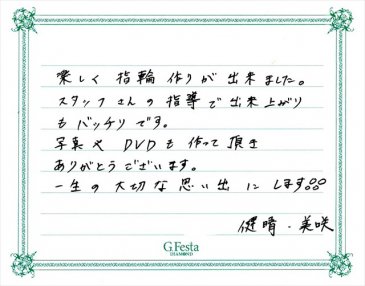 楽しく 指輪 作りが 出来ました。
スタッフさんの指導で出来上がり
もバッチリです。
写真や DVDも作って頂き
ありがとうございます。
一生の大切な思い出にします!!
健晴・美咲
G.Festa
DIAMOND